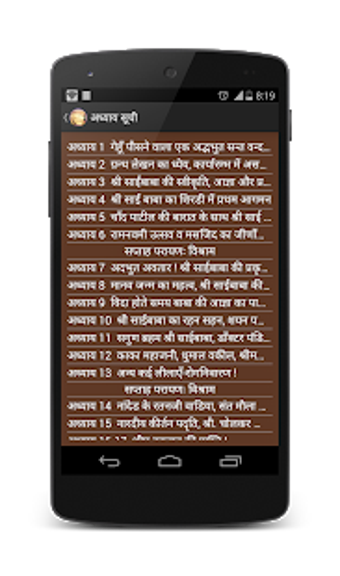 8:19
अध्याय सूची
अध्याय 1 गेहूँ पीसने वाला एक अद्भभुत सन्त वन्द...
अध्याय 2 ग्रन्थ लेखन का ध्येय, कार्यारम्भ में अस...
अध्याय 3 श्री साईंबाबा की स्वीकृति, आज्ञा और प्र...
अध्याय 4 श्री साईं बाबा का शिरडी में प्रथम आगमन
अध्याय 5 चाँद पाटील की बारात के साथ श्री साई ...
अध्याय 6 रामनवमी उत्सव व मसजिद का जीर्णो...
सप्ताह पारायणः विश्राम
अध्याय 7 अदभुत अवतार ! श्री साईबाबा की प्रकृ...
अध्याय 8 मानव जन्म का महत्व, श्री साईबाबा की...
अध्याय 9 विदा होते समय बाबा की आज्ञा का पा...
अध्याय 10 श्री साईबाबा का रहन सहन, शयन प...
अध्याय 11 सगुण ब्रहम श्री साईबाबा, डॉक्टर पंडि...
अध्याय 12 काका महाजनी, धुमाल वकील, श्रीम...
अध्याय 13 अन्य कई लीलाएँ रोगनिवारण !
सप्ताह पारायणः विश्राम
अध्याय 14 नांदेड के रतनजी वाडिया, संत मौला ...
अध्याय 15 नारदीय कीर्तन पदृति, श्री. चोलकर ...